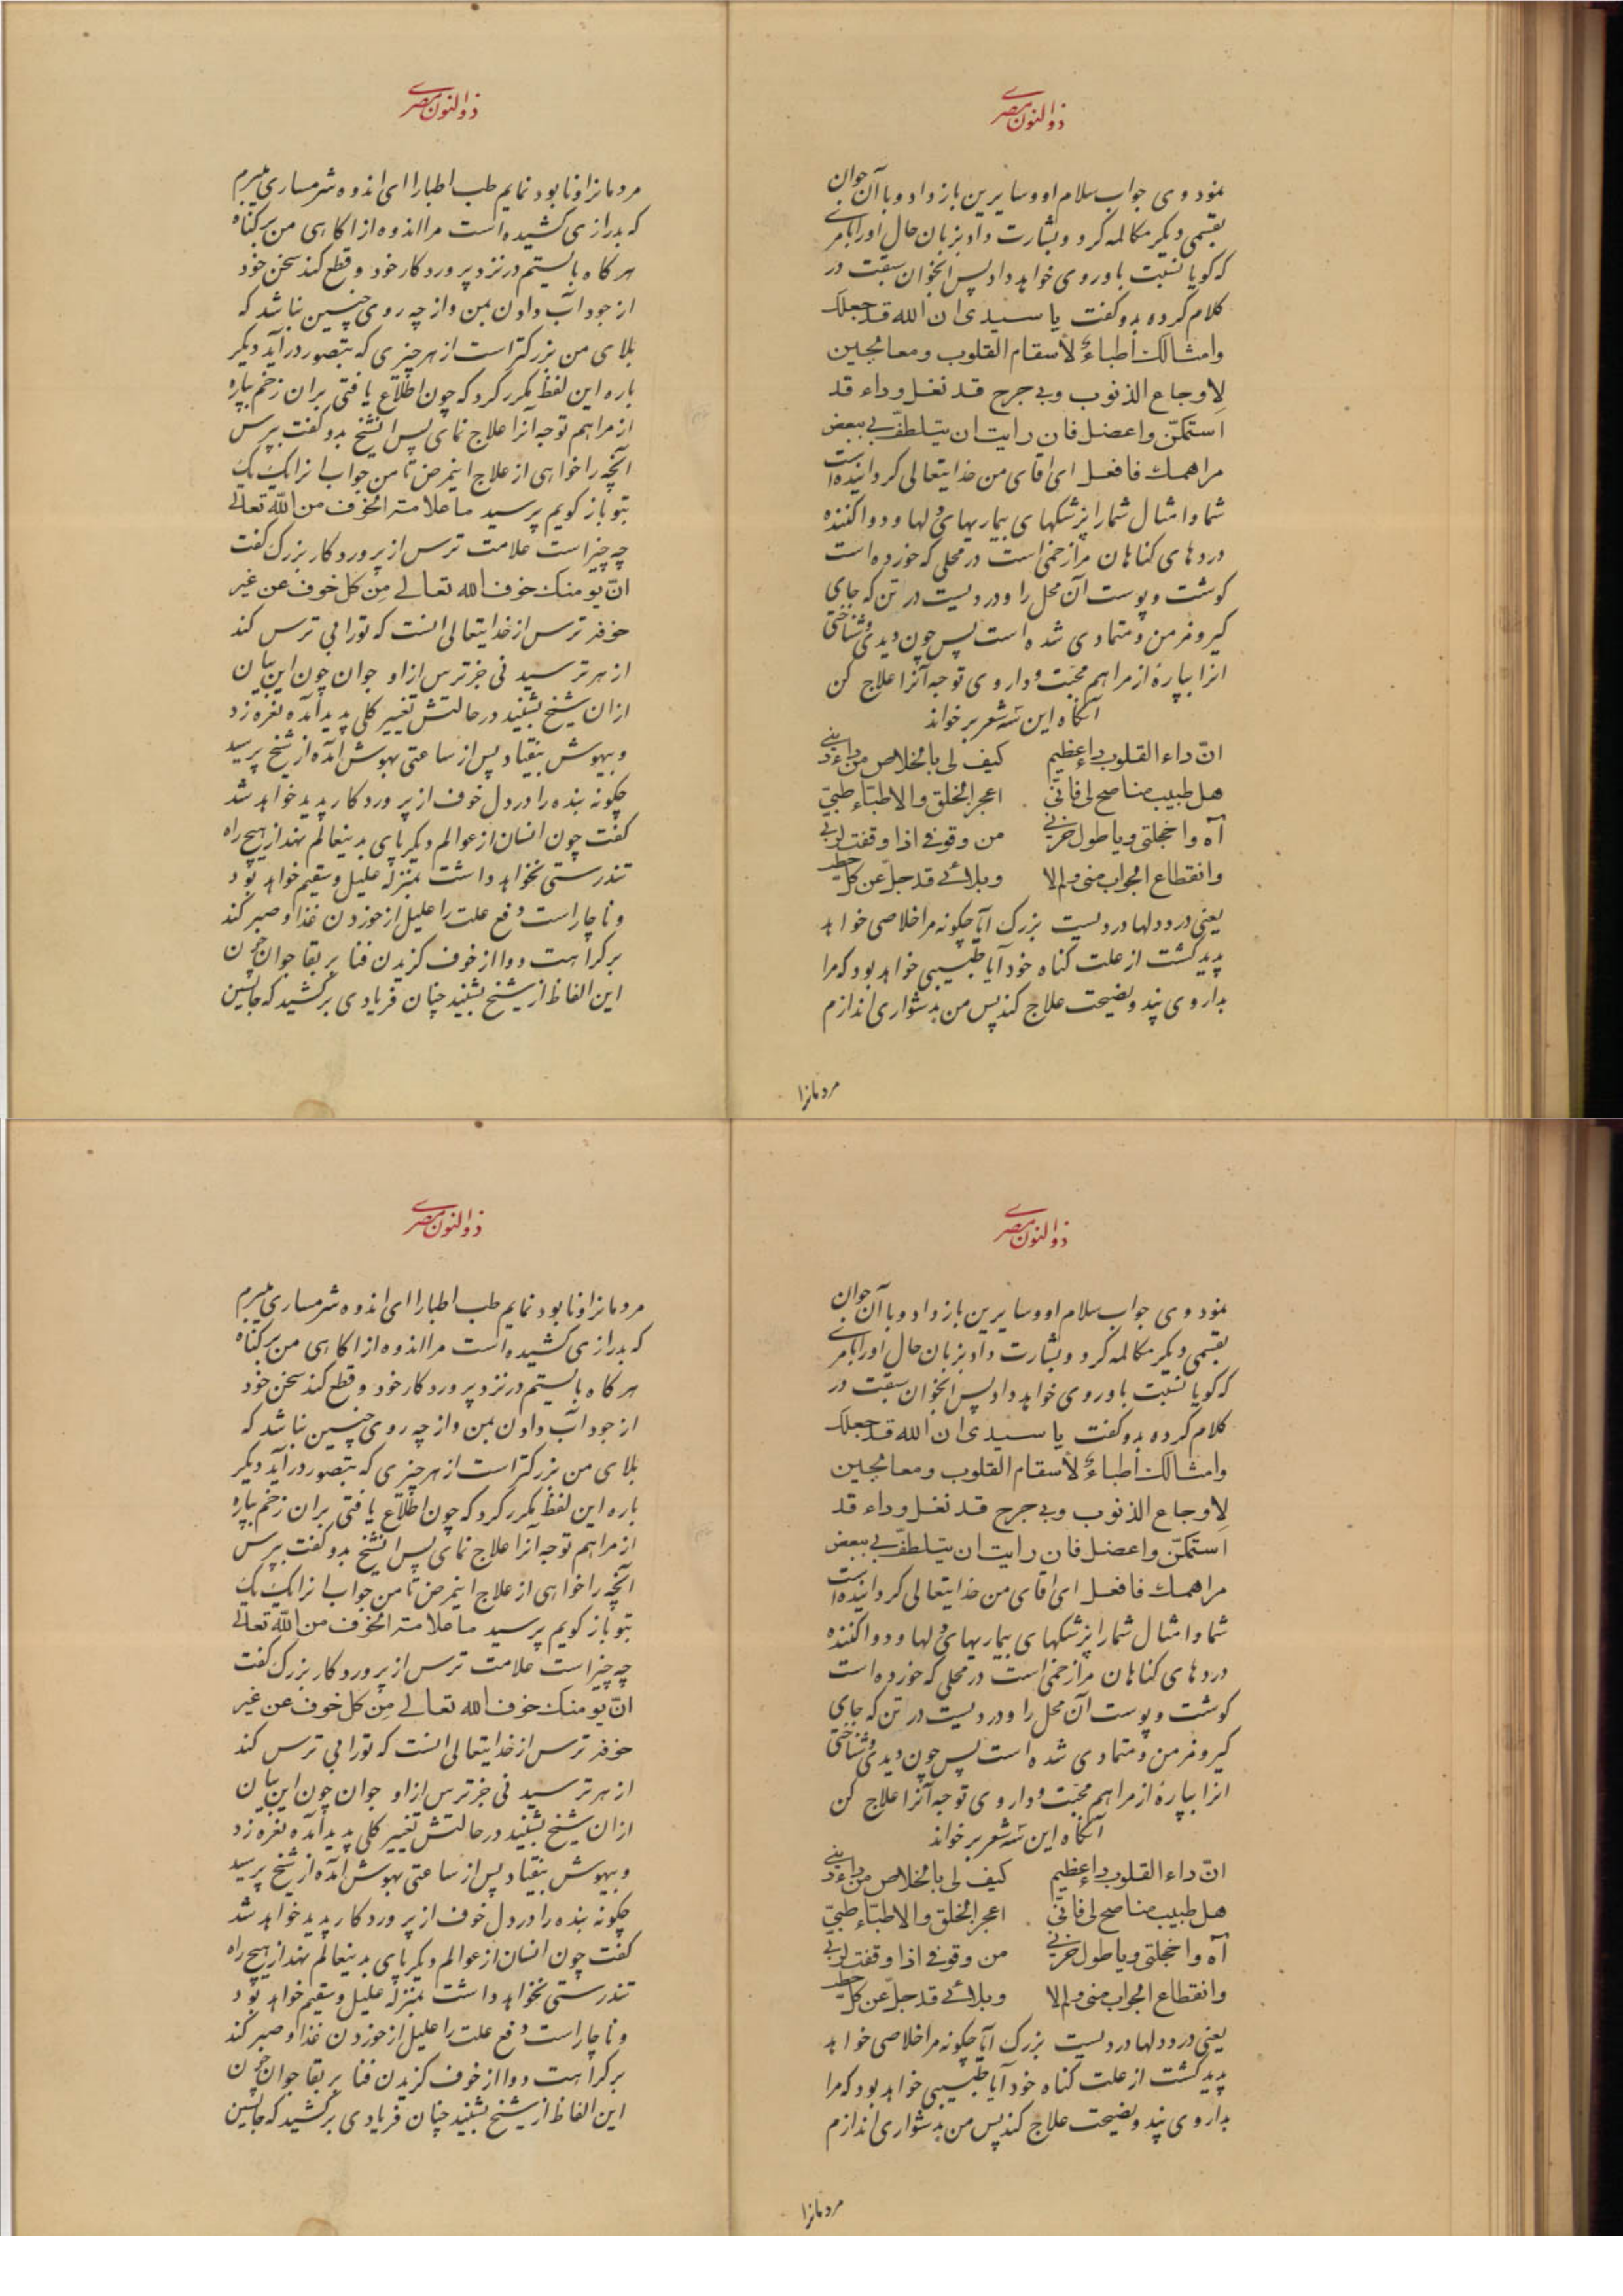 ذوالنون مصری
نمود وی جواب سلام او و سایرین باز داد و با آن جوان
بقسمی دیکر مکالمه کرد و بشارت داد بزبان حال او را بامری
که کویا نسبت باو روی خواهد داد پس انجوان سبقت در
کلام کرده بدو کفت یا سیدی ان الله قد جعلک
وامثالک اطباءً لأسقام القلوب ومعالجین
لاوجاع الذنوب وبی جرح قد نغل وداء قد
استمکن واعضل فان رایت ان تتلطف بی ببعض
مراهمك فافعل ای اقای من خدایتعالی کردانیده است
شما و امثال شما را پزشکهای بیماریهای دلها و دوا کننده
دردهای کناهان مرا زخمی است در محلی که خورده است
کوشت و پوست آن محل را و دردیست در تن که جای
کیر و فرمن و متمادی شده است پس چون دیدی و شناختی
انرا بپارهٔ از مراهم محبت و داروی توجه آنرا علاج کن
آنکاه این سه شعر برخواند
انّ داء القلوب داء عظیم کیف لی بالخلاص من داء دینی
هل طبیب مناصح لی فانّی اعجز الخلق والاطبّاء طبّی
آه واخجلتی ویا طول حزنی من وقوفی اذا وقفت لربی
وانقطاع الجواب منی والا وبلائی قد جلّ عن کل خطب
یعنی درد دلها دردیست بزرک آیا چکونه مرا خلاصی خواهد
پدید کشت از علت کناه خود آیا طبیبی خواهد بود که مرا
بداروی پند و نصیحت علاج کند پس من بدشواری اندازم
مردمانرا
ذوالنون مصری
مردمانرا و نابود نمایم طب اطبا را ای اندوه شرمساری میبرم
که بدرازی کشیده است مرا اندوه از اکاهی من بر کناه
هر کاه بایستم در نزد پروردکار خود و قطع کند سخن خود
از جواب دادن بمن و از چه روی چنین نباشد که
بلای من بزرکتر است از هر چیزی که بتصور درآید دیکر
باره این لفظ مکرر کرد که چون اطلاع یافتی بران زخم بپارهٔ
از مراهم توجه آنرا علاج نمای پس انشیخ بدو کفت بپرس
آنچه را خواهی از علاج اینمرض تا من جواب انرا یک یک
بتو باز کویم پرسید ما علامة الخوف من اللّه تعالی
چه چیز است علامت ترس از پروردکار بزرک کفت
انّ یومنك خوف الله تعالی من کل خوف عن غیر
خوفه ترس از خدایتعالی انست که تو را بی ترس کند
از هر ترسیدنی جز ترس از او جوان چون این بیان
از ان شیخ بشنید در حالتش تغییر کلی پدید آمده نعره زد
و بیهوش بیفتاد پس از ساعتی بهوش آمده از شیخ پرسید
چکونه بنده را در دل خوف از پروردکار پدید خواهد شد
کفت چون انسان از عوالم دیکر پای بدینعالم نهد از هیچ راه
تندرستی نخواهد داشت بمنزله علیل و سقیم خواهد بود
و ناچار است دفع علت را علیل از خوردن غذا و صبر کند
بر کراهت دوا از خوف کزیدن فنا بر بقا جوان چون
این الفاظ از شیخ بشنید چنان فریادی برکشید که جالسین
ذوالنون مصری
نمود وی جواب سلام او و سایرین باز داد و با آن جوان
بقسمی دیکر مکالمه کرد و بشارت داد بزبان حال او را بامری
که کویا نسبت باو روی خواهد داد پس انجوان سبقت در
کلام کرده بدو کفت یا سیدی ان الله قد جعلک
وامثالک اطباءً لأسقام القلوب ومعالجین
لاوجاع الذنوب وبی جرح قد نغل وداء قد
استمکن واعضل فان رایت ان تتلطف بی ببعض
مراهمك فافعل ای اقای من خدایتعالی کردانیده است
شما و امثال شما را پزشکهای بیماریهای دلها و دوا کننده
دردهای کناهان مرا زخمی است در محلی که خورده است
کوشت و پوست آن محل را و دردیست در تن که جای
کیر و فرمن و متمادی شده است پس چون دیدی و شناختی
انرا بپارهٔ از مراهم محبت و داروی توجه آنرا علاج کن
آنکاه این سه شعر برخواند
انّ داء القلوب داء عظیم کیف لی بالخلاص من داء دینی
هل طبیب مناصح لی فانّی اعجز الخلق والاطبّاء طبّی
آه واخجلتی ویا طول حزنی من وقوفی اذا وقفت لربی
وانقطاع الجواب منی والا وبلائی قد جلّ عن کل خطب
یعنی درد دلها دردیست بزرک آیا چکونه مرا خلاصی خواهد
پدید کشت از علت کناه خود آیا طبیبی خواهد بود که مرا
بداروی پند و نصیحت علاج کند پس من بدشواری اندازم
مردمانرا
ذوالنون مصری
مردمانرا و نابود نمایم طب اطبا را ای اندوه شرمساری میبرم
که بدرازی کشیده است مرا اندوه از اکاهی من بر کناه
هر کاه بایستم در نزد پروردکار خود و قطع کند سخن خود
از جواب دادن بمن و از چه روی چنین نباشد که
بلای من بزرکتر است از هر چیزی که بتصور درآید دیکر
باره این لفظ مکرر کرد که چون اطلاع یافتی بران زخم بپارهٔ
از مراهم توجه آنرا علاج نمای پس انشیخ بدو کفت بپرس
آنچه را خواهی از علاج اینمرض تا من جواب انرا یک یک
بتو باز کویم پرسید ما علامة الخوف من اللّه تعالی
چه چیز است علامت ترس از پروردکار بزرک کفت
انّ یومنك خوف الله تعالی من کل خوف عن غیر
خوفه ترس از خدایتعالی انست که تو را بی ترس کند
از هر ترسیدنی جز ترس از او جوان چون این بیان
از ان شیخ بشنید در حالتش تغییر کلی پدید آمده نعره زد
و بیهوش بیفتاد پس از ساعتی بهوش آمده از شیخ پرسید
چکونه بنده را در دل خوف از پروردکار پدید خواهد شد
کفت چون انسان از عوالم دیکر پای بدینعالم نهد از هیچ راه
تندرستی نخواهد داشت بمنزله علیل و سقیم خواهد بود
و ناچار است دفع علت را علیل از خوردن غذا و صبر کند
بر کراهت دوا از خوف کزیدن فنا بر بقا جوان چون
این الفاظ از شیخ بشنید چنان فریادی برکشید که جالسین